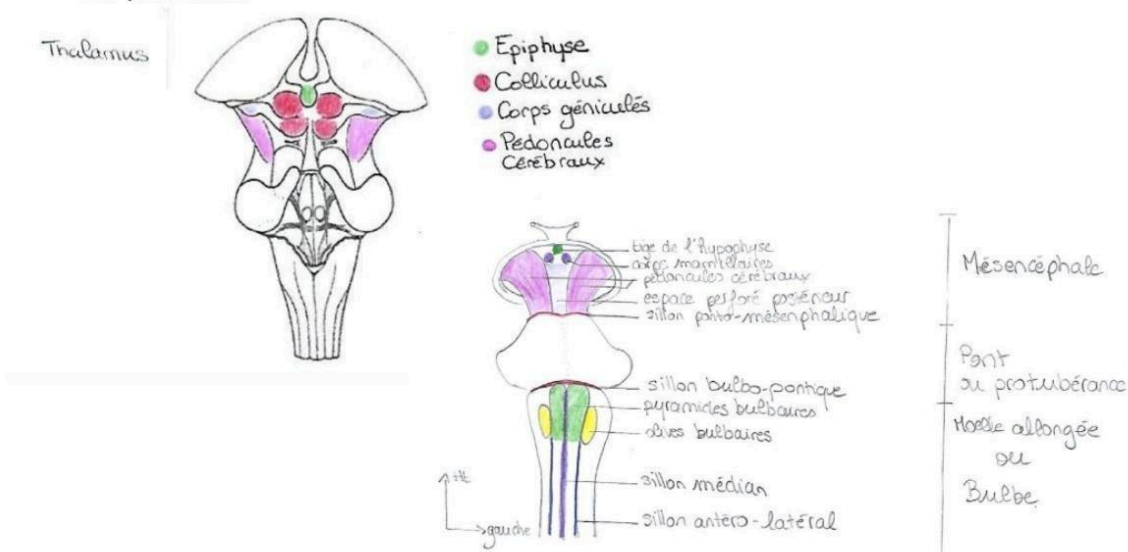 Thalamus
Epiphyse
Colliculus
Corps géniculés
Pédoncules
Cérébraux
tige de l'hypophyse
corps mamilaires
pédoncules cérébraux
espace perforé postérieur
sillon ponto-mésenphalique
sillon bulbo-pontique
pyramides bulbaires
olives bulbaires
sillon médian
sillon antéro-latéral
Ht
gauche
Mésencéphale
Pont
ou protubérance
Moelle allongée
ou
Bulbe